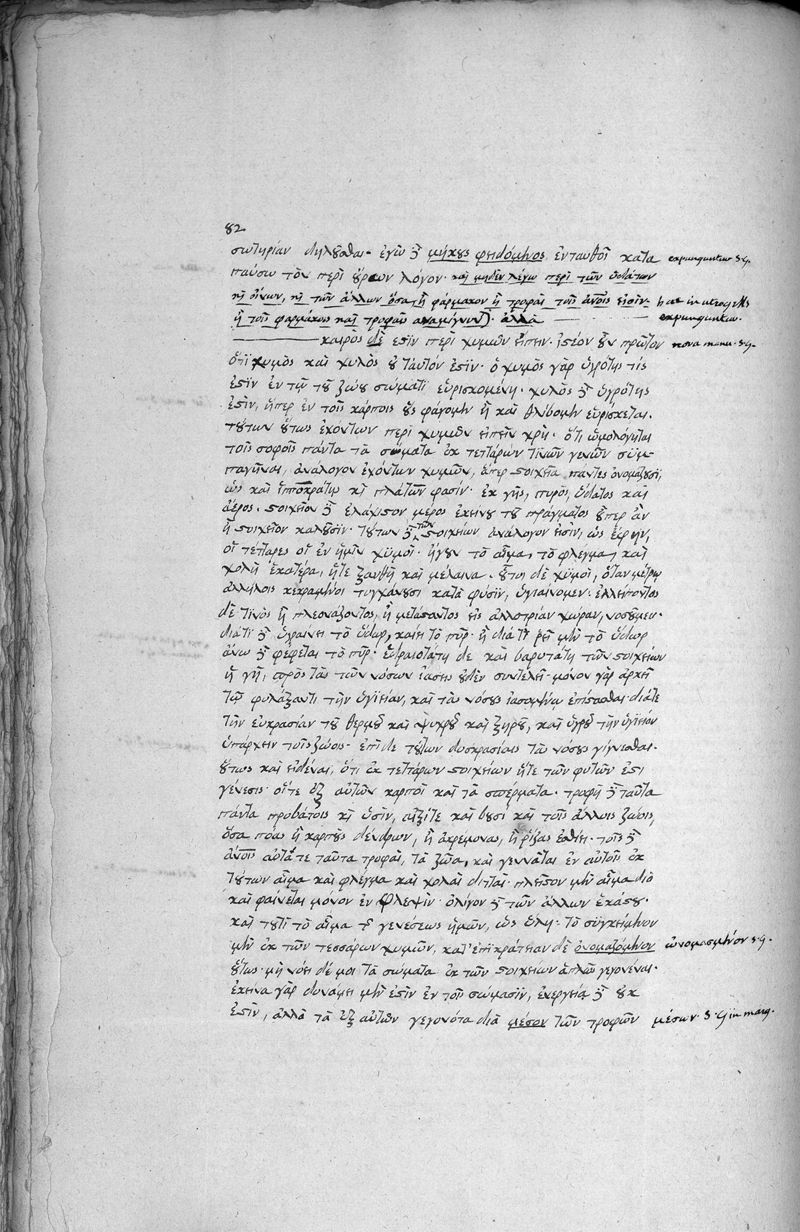 82
σωτηρίαν δηλοῦσθαι· ἐγὼ δὲ μήκους φειδόμενος ἐνταυθοῖ κατα expunguntur s.G.
παύσω τὸν περὶ οὔρων λόγον· καὶ μηδὲν λέγω περὶ τῶν ὑδάτων
καὶ οἴνων, καὶ τῶν ἄλλων ὅσα ἢ φάρμακον ἢ τροφαὶ τοῖς ἀνοις εἰσίν· haec in utroque Ms
ἢ τοῖς φαρμάκοις καὶ τροφαῖς ἀναμίγνυνται. ἀλλὰ expunguntur
καιρὸς δὲ ἐστὶν περὶ χυμῶν εἰπεῖν. ἰστέον οὖν πρῶτον nova manu. s.G.
ὅτι χυμὸς καὶ χυλὸς οὐ ταυτόν ἐστιν. ὁ χυμὸς γὰρ ὑγρότης τίς
ἐστιν ἐν τῷ τοῦ ζώου σώματι εὑρισκομένη. χυλὸς δὲ ὑγρότης
ἐστὶν, ἥπερ ἐν τοῖς κάρποις οὓς φάγομεν ἢ καὶ θλίβομεν εὑρίσκεται.
τούτων οὕτως ἐχόντων περὶ χυμῶν εἰπεῖν χρή. ὅτι ὡμολόγηται
τοῖς σοφοῖς πάντα τὰ σώματα ἐκ τεττάρων τινῶν γενῶν συμ-
παγῆναι, ἀνάλογον ἐχόντων χυμῶν, ἅπερ στοιχεῖα πάντες ὀνομάζουσι,
ὡς καὶ ἱπποκράτης καὶ πλάτων φασίν· ἐκ γῆς, πυρὸς, ὕδατος καὶ
ἀέρος. στοιχεῖον δὲ ἐλάχιστον μέρος ἐκείνου τοῦ πράγματος οὗπερ ἂν
ᾖ στοιχεῖον καλοῦσιν. τούτων δὲ τῶν στοιχείων ἀνάλογον εἰσὶν, ὡς εἴρην,
οἱ τέτταρες οἱ ἐν ἡμῖν χυμοί. ἤγουν τὸ αἷμα, τὸ φλεγμα, καὶ
χολὴ ἑκατέρα, ἥτε ξανθὴ καὶ μέλαινα. οὗτοι δὲ χυμοὶ, ὅταν μέτρῳ
ἀλλήλοις κεκραμένοι τυγχάνουσι κατὰ φύσιν, ὑγιαίνομεν. ἐλλείποντος
δὲ τινὸς ἢ πλεονάζοντος, ἢ μεταστάντος εἰς ἀλλοτρίαν χώραν, νοσοῦμεν·
διάτι δὲ ὑγραίνει τὸ ὕδωρ, καίει τὸ πῦρ. ἢ διὰ τί ῥεῖ μὲν τὸ ὕδωρ
ἄνω δὲ φέρεται τὸ πῦρ. ἑδραιοτάτη δὲ καὶ βαρυτάτη τῶν στοιχείων
ἡ γῆ, πρὸς τὰς τῶν νόσων ἰάσεις οὐδὲν συντελεῖ. μόνον γὰρ ἀρκεῖ
τῷ φυλάξαντι τὴν ὑγίειαν, καὶ τὰς νόσους ἰασομένῳ ἐπίστασθαι διάτε
τὴν εὐκρασίαν τοῦ θερμοῦ καὶ ψυχροῦ καὶ ξηροῦ, καὶ ὑγροῦ τὴν ὑγίειαν
ὑπάρχειν τοῖς ζώοις. ἐπὶ δὲ τούτων δυσκρασίαις τὰς νόσους γίγνεσθαι.
οὕτως καὶ εἰδέναι, ὅτι ἐκ τεττάρων στοιχείων ἥτε τῶν φυτῶν ἐστὶ
γένεσις οἵτε ἐξ αὐτῶν καρποὶ καὶ τὰ σπέρματα. τροφὴ δὲ ταῦτα
πάντα προβάτοις καὶ ὑσὶν, αἰξίτε καὶ βουσὶ καὶ τοῖς ἄλλοις ζώοις,
ὅσα πόας ἢ καρποὺς δένδρων, ἢ ἀκρεμονας, ἢ ῥίζας ἐσθίει. τοῖς δὲ
ἀνοις αὐτά τε ταῦτα τροφαὶ, τὰ ζῶα, καὶ γεννᾶται ἐν αὐτοῖς ἐκ
τούτων αἷμα καὶ φλέγμα καὶ χολαὶ διτταί. πλεῖστον μὲν αἷμα διὸ
καὶ φαίνεται μόνον ἐν φλεψὶν. ὀλίγον δὲ τῶν ἄλλων ἑκάστου.
καὶ τουτὶ τὸ αἷμα τῆς γενέσεως ἡμῶν, ὡς ὕλη. τὸ συγκείμενον
μὲν ἐκ τῶν τεσσάρων χυμῶν, κατ' ἐπικράτειαν δὲ ὀνομαζόμενον ὠνομασμένον s.G.
οὕτως. μὴ νόει δέ μοι τὰ σώματα ἐκ τῶν στοιχείων ἁπλῶς γεγονέναι.
ἐκεῖνα γὰρ δυνάμει μὲν ἐστὶν ἐν τοῖς σώμασιν, ἐνεργείᾳ δὲ οὐκ
ἐστὶν, ἀλλὰ τὰ ἐξ αὐτῶν γεγονότα διὰ μέσον τῶν τροφῶν μέσων. s.G in marg.